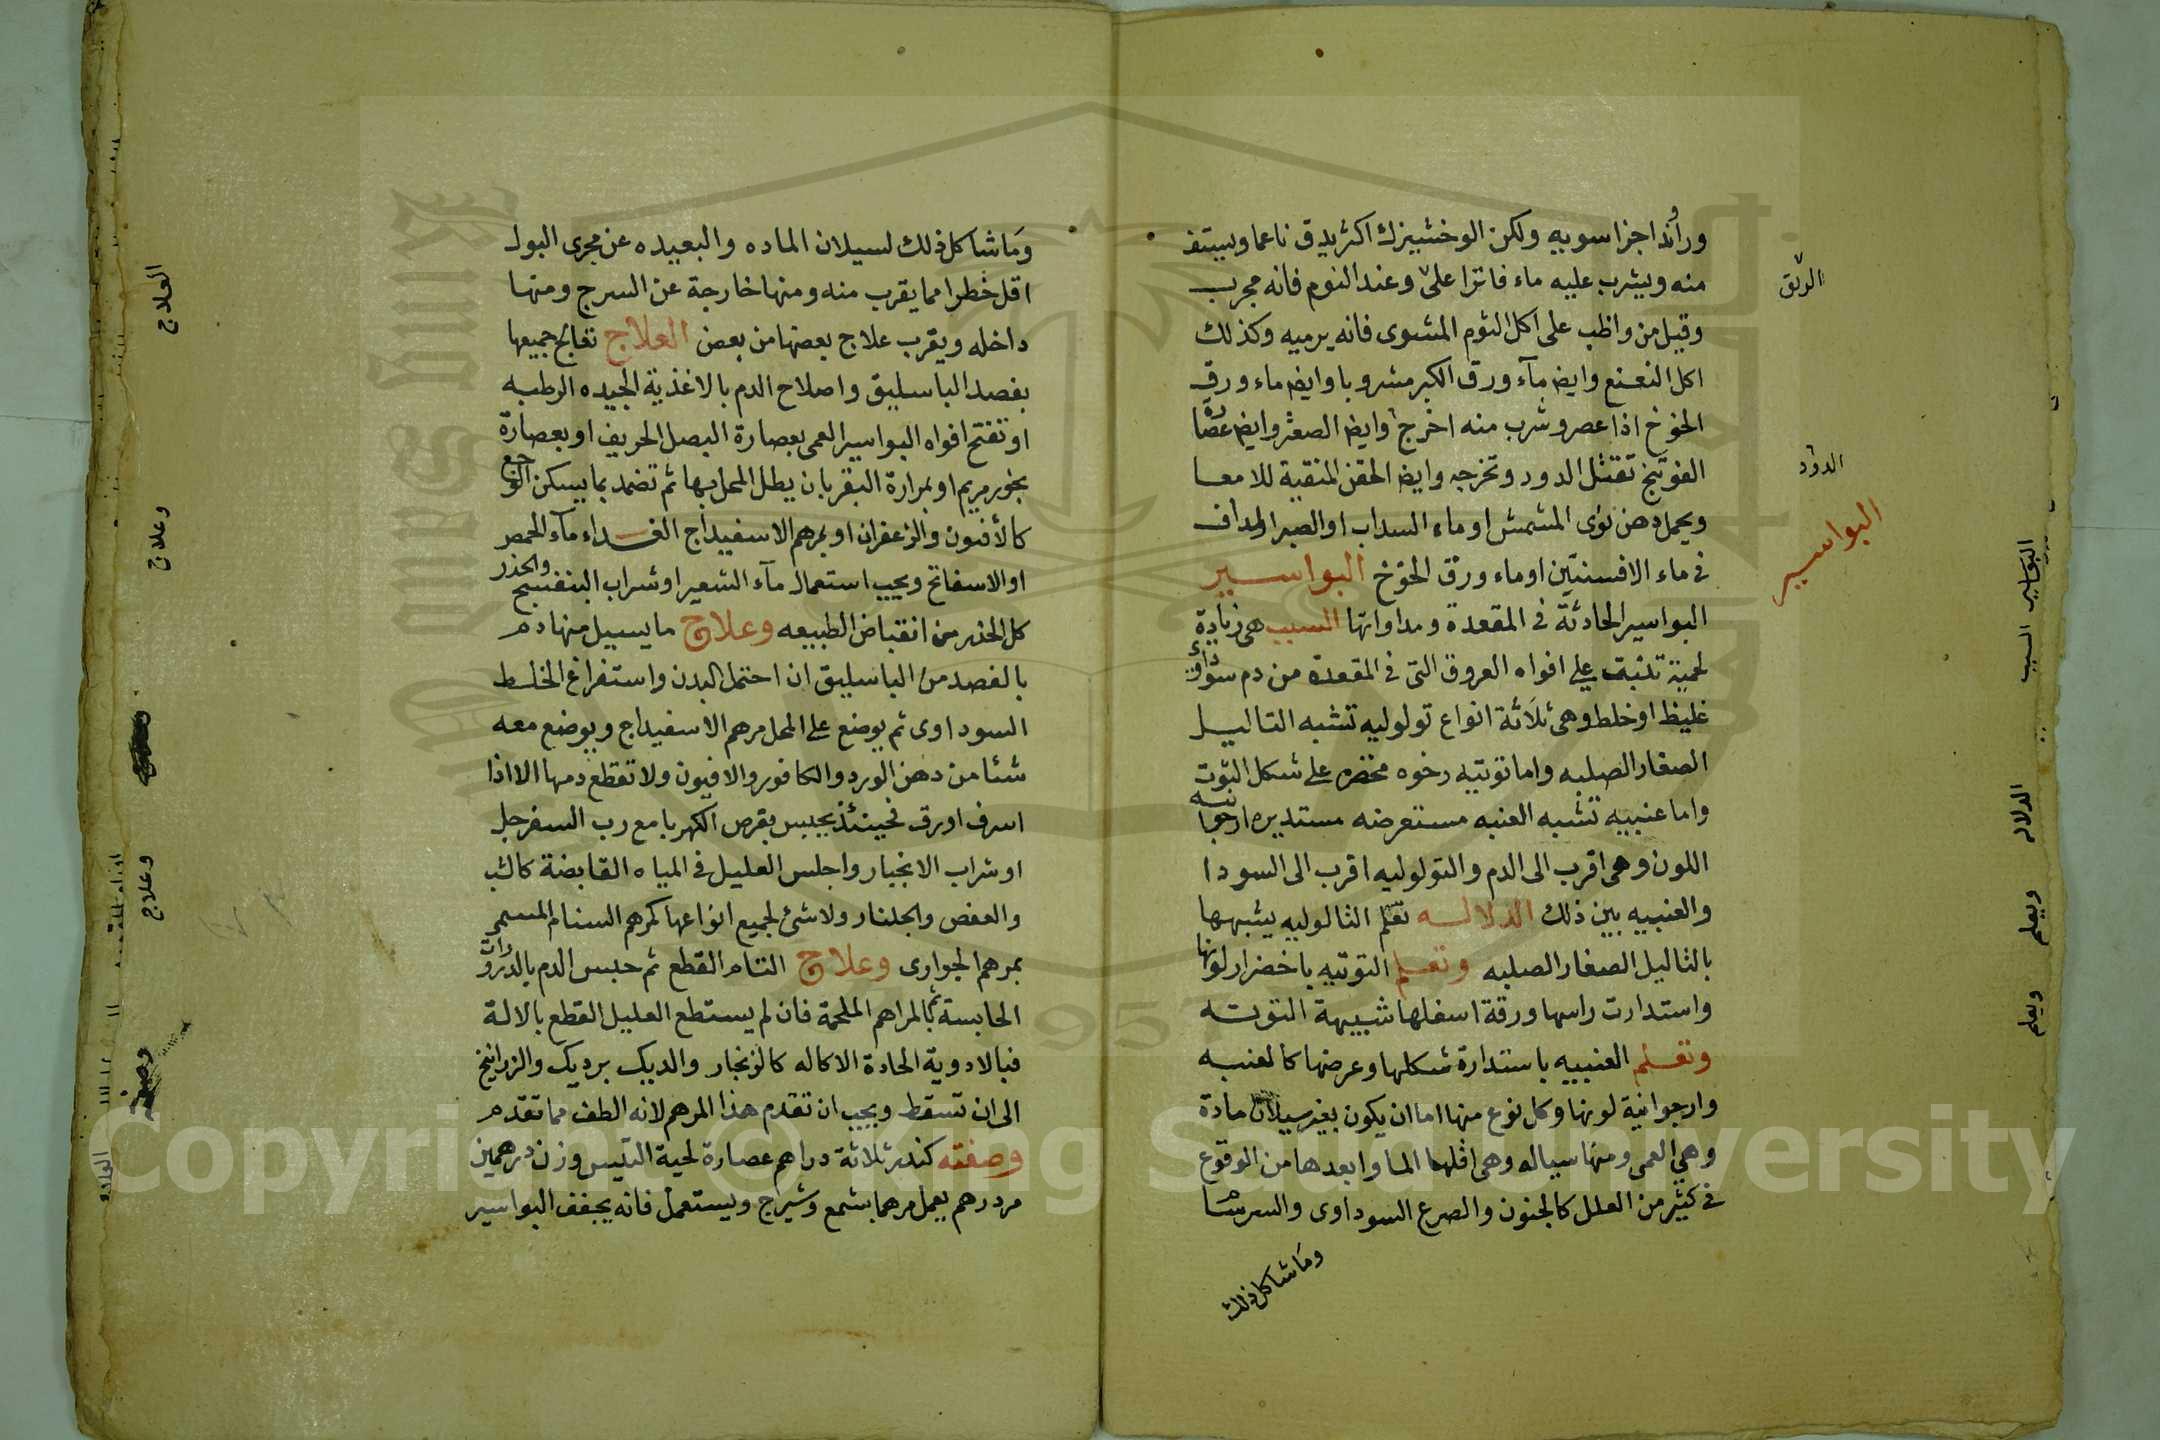 وراوندا اجزا سويه ولكن الوخشيزك اكثر يدق ناعما ويستف
منه ويشرب عليه ماء فاترا على وعند النوم فانه مجرب
الريق
وقيل من واظب على اكل الثوم المشوى فانه يرميه وكذلك
اكل النعنع وايض مآء ورق الكبر مشروبا وايض ماء ورق
الخوخ اذا عصر وشرب منه اخرج وايض الصعتر وايض عصارة
الدود
الفوتنج تقتل الدود وتخرجه وايض الحقن المنقية للامعا
ويحمل دهن نوى المشمش او ماء السداب او الصبر المداف
فى ماء الافسنتين او ماء ورق الخوخ البواسير
البواسير
البواسير الحادثة فى المقعدة ومداواتها السبب هى زيادة
لحمية تنبت على افواه العروق التى فى المقعدة من دم سوداوى
غليظ او خلط وهى ثلاثة انواع تولوليه تشبه التاليل
الصغار الصلبه واما توتيه رخوه مخضره على شكل التوت
واما عنبيه تشبه العنبه مستعرضه مستديره ارجوانيه
اللون وهى اقرب الى الدم والتولوليه اقرب الى السودا
والعنبيه بين ذلك الدلاله تعلم الثالوليه يشبهها
بالثاليل الصغار الصلبه وتعلم التوتيه باخضرار لونها
واستدارت راسها ورقة اسفلها شبيهة التوته
وتعلم العنبيه باستدارة شكلها وعرضها كالعنبه
وارجوانية لونها وكل نوع منها اما ان يكون بغير سيلان مادة
وهى العمى ومنها سياله وهى اقلها الما وابعدها من الوقوع
فى كثير من العلل كالجنون والصرع السوداوى والسرسا
وما شاكل ذلك
البواسير السبب
الدلاله
ويعلم
ويعلم
وما شاكل ذلك لسيلان الماده والبعيده عن مجرى البول
اقل خطرا مما يقرب منه ومنها خارجة عن السرج ومنها
داخله ويقرب علاج بعضها من بعض العلاج تعالج جميعها
بفصد الباسليق واصلاح الدم بالاغذية الجيده الرطبه
او تفتح افواه البواسير العمى بعصارة البصل الحريف او بعصارة
بخور مريم او بمرارة البقر بان يطلى المحل بها ثم تضمد بما يسكن الوجع
كالأفيون والزعفران او بمرهم الاسفيداج الغداء مآء الحمص
او الاسفاتخ ويجب استعمال مآء الشعير او شراب البنفسج والحذر
كل الحذر من انقباض الطبيعه وعلاج ما يسيل منها دم
بالفصد من الباسليق ان احتمل البدن واستفراغ الخلط
السوداوى ثم يوضع على المحل مرهم الاسفيداج ويوضع معه
شئا من دهن الورد والكافور والافيون ولا تقطع دمها الا اذا
اسرف او رق فحينئذ يحبس بقرص الكهربا مع رب السفرجل
او شراب الانجبار واجلس العليل فى المياه القابضة كالشب
والعفص والجلنار ولا شئ لجميع انواعها كمرهم السنام المسمى
بمرهم الجوارى وعلاج التام القطع ثم حبس الدم بالدرورات
الحابسة ثم بالمراهم الملحمة فان لم يستطع العليل القطع بالالة
فبالادوية الحادة الاكاله كالزنجار والديك برديك والزرانيخ
الى ان تسقط ويجب ان تقدم هذا المرهم لانه الطف مما تقدم
وصفته كندر ثلاثة دراهم عصارة لحية التيس وزن درهمين
مر درهم يعمل مرهما بشمع وشيرج ويستعمل فانه يجفف البواسير
العلاج
وعلاج
وعلاج
Copyright © King Saud University